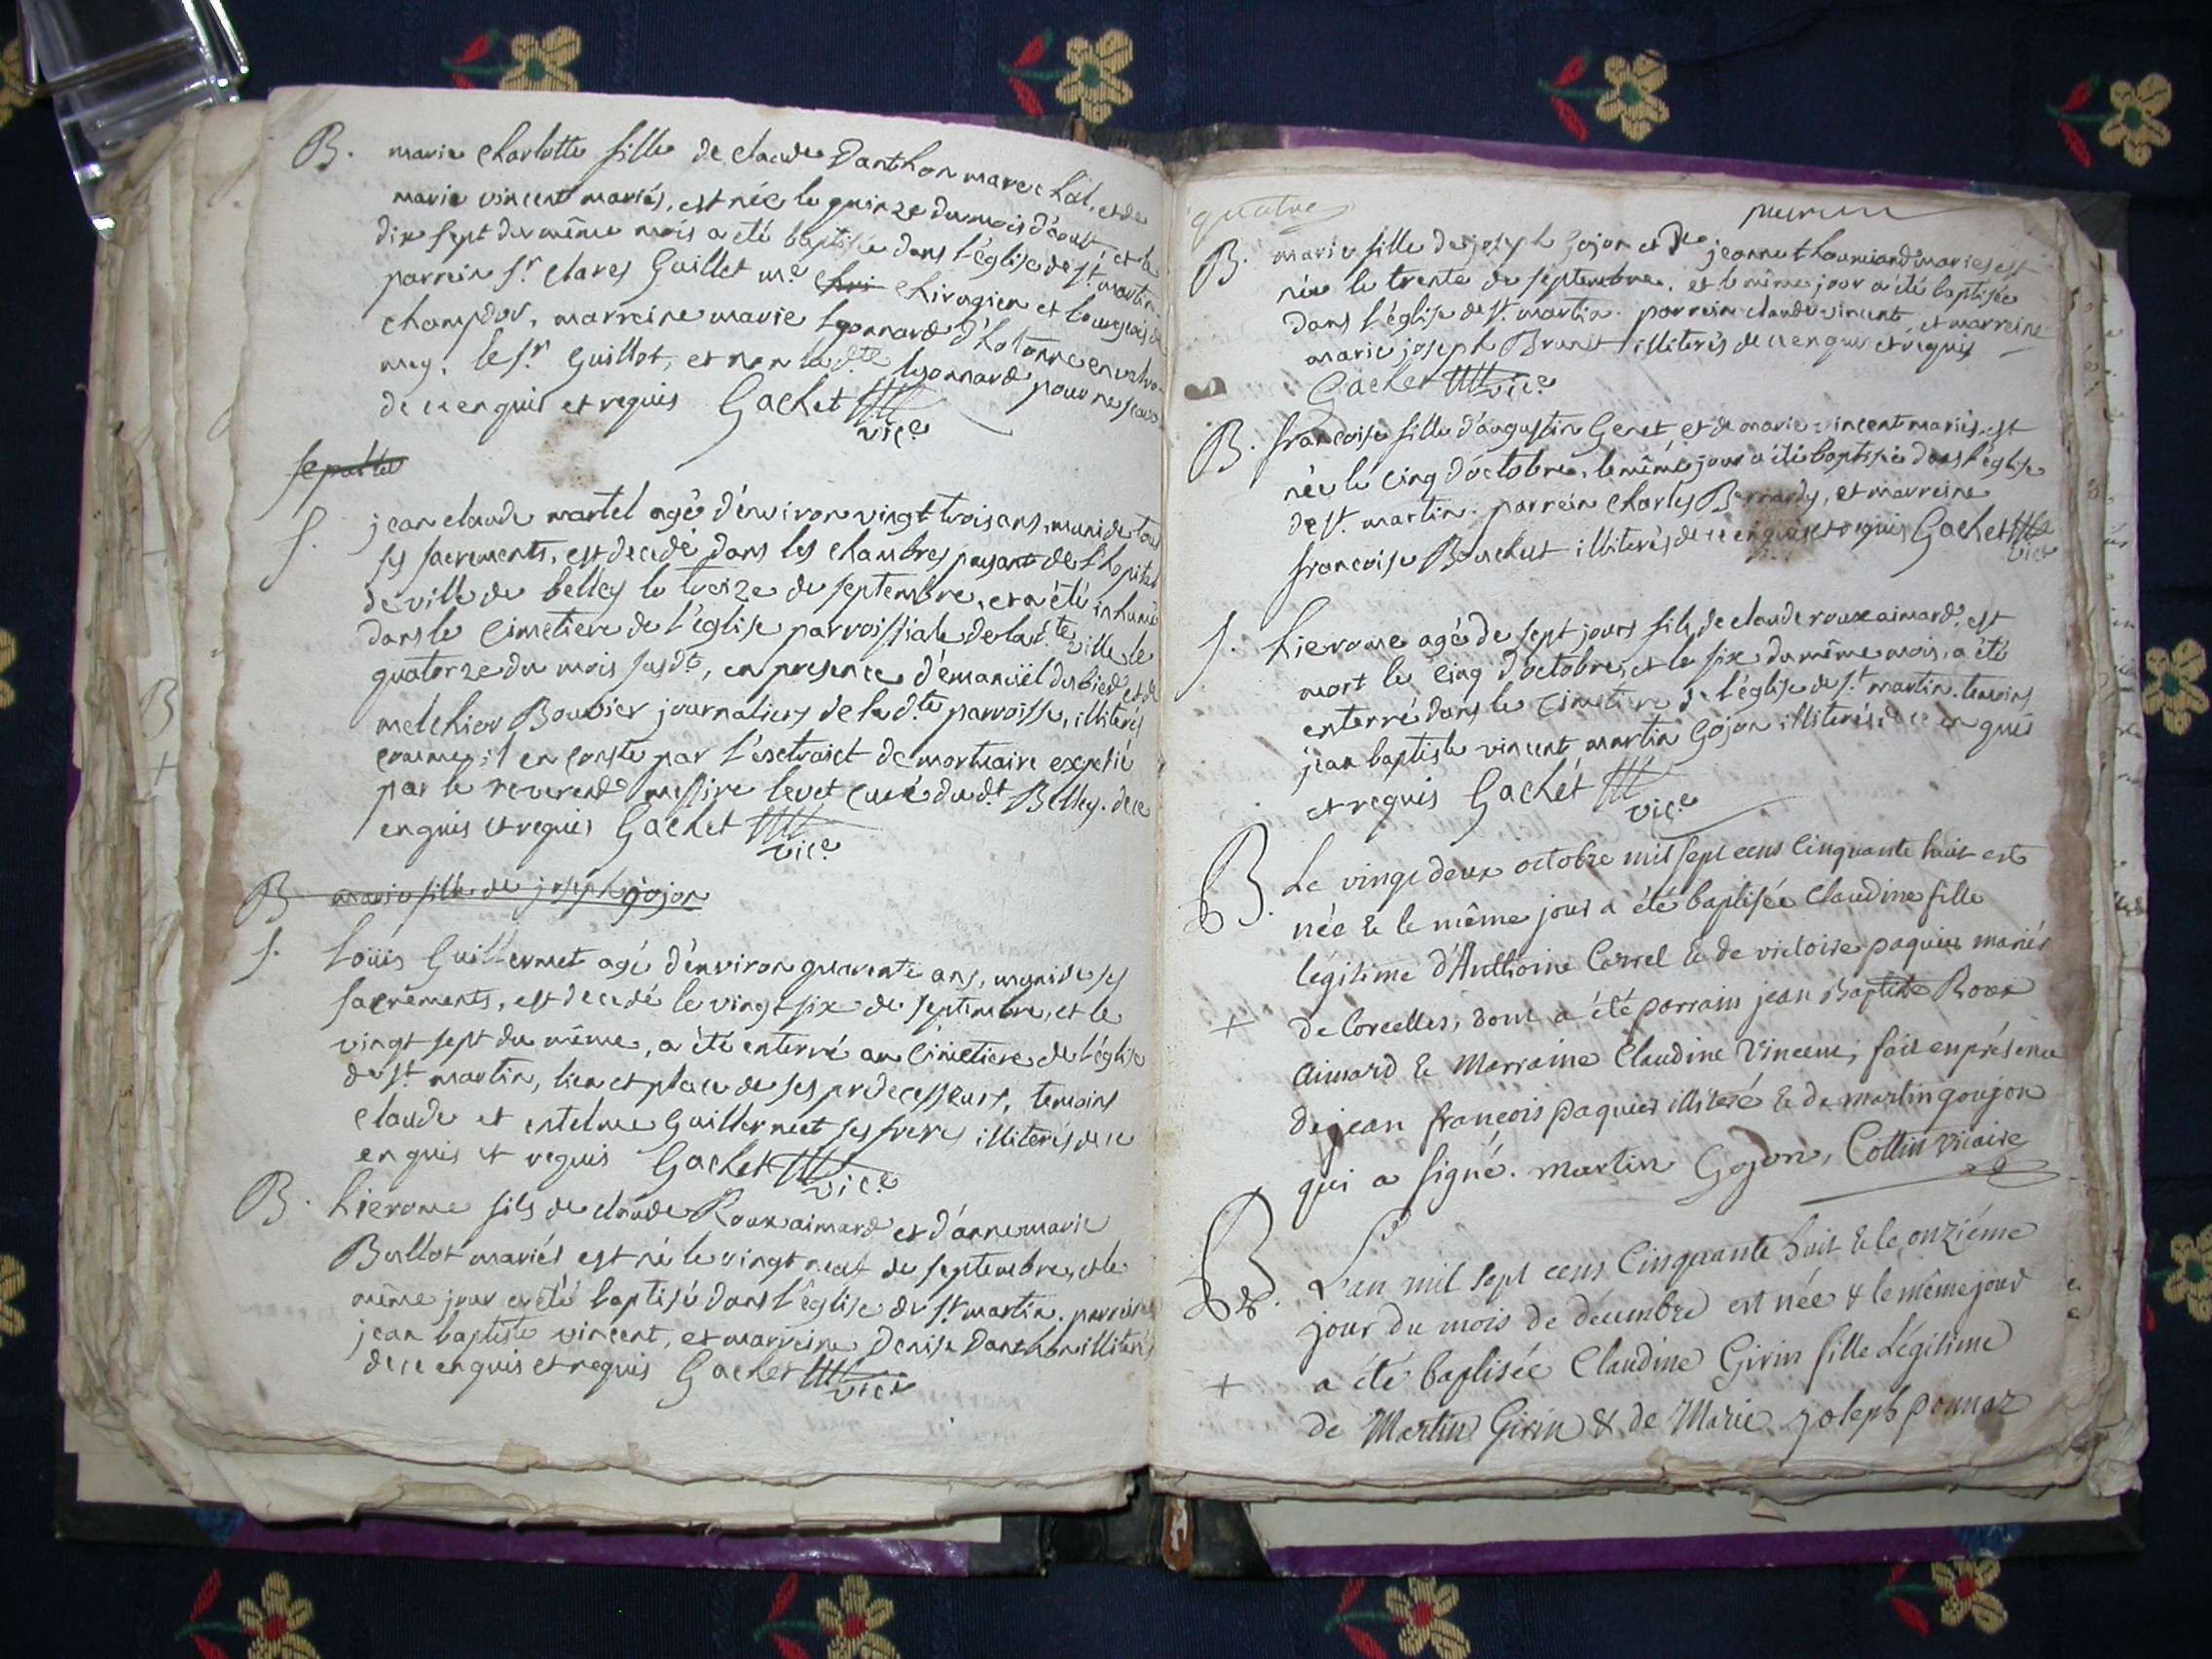 B. marie Charlotte fille de claude Danthon marechal, et de
marie vincent mariés, est née le quinze du mois d'aoust et le
dix sept du même mois a été baptisée dans l'église de st. martin.
parrein sr. Guillet me. chirugien et bourgeois de
champdor, marreine marie lyonnard d'hotonne en valro-
mey. le sr. Guillot, et non la dte. lyonnard pour ne scavoir
de ce enquis et requis Gachet
vice
S. jean claude martel agé d'environ vingt trois ans, muni de tous
ses sacrements, est decedé dans les chambres payant de l'hopital
de ville de belley le treize de septembre, et a été inhumé
dans le cimetiere de l'église parroissiale de la dte ville le
quatorze du mois susdt, en presence d'emanuël et de
melchior Bouvier journaliers de la dte parroisse, illiterés
comme il en conste par l'extraict de mortuaire expedié
par le reverend messire levet curé dudt Belley. de ce
enquis et requis Gachet
vice
B marie fille de joseph gojon
S. Loüis Guillermet agé d'environ quarente ans, muni de ses
sacrements, est decedé le vingt six de septembre, et le
vingt sept du même, a été enterré au cimetiere de l'église
de st martin, lieu et place de ses predecesseurs, temoins
claude et entelme Guillermet ses freres illiterés de ce
enquis et requis Gachet
vice
B. hierome fils de claude Roux aimard et d'anne marie
Bullot mariés est né le vingt neuf de septembre, et le
même jour a été baptisé dans l'église de st martin. parrein
jean baptiste vincent, et marreine Denise Danthon illiterés
de ce enquis et requis Gachet
vice
quatre
B. marie fille de joseph Gojon et de jeanne mariés est
née le trente de septembre, et le même jour a été baptisée
dans l'église de st. martin. parrein claude vincent, et marreine
marie joseph Brunet illiterés de ce enquis et requis
Gachet vice
B. francoise fille d'augustin Genet et de marie vincent mariés est
née le cinq d'octobre, le même jour a été baptisée dans l'église
de st. martin. parrein Charles Bernardy, et marreine
francoise Bouchut illiterés de ce enquis et requis Gachet
vice
S. hierome agé de sept jours fils de claude roux aimard, est
mort le cinq d'octobre, et le six du même mois, a été
enterré dans le cimetiere de l'église de st martin. temoins
jean baptiste vincent martin Gojon illiterés, de ce enquis
et requis Gachet
vice
B. Le vingt deux octobre mil sept cens cinquante huit est
née & le même jour a été baptisée Claudine fille
légitime d'Anthoine Correl & de victoire paquier mariés
+ de Corcelles, dont a été parrain jean Baptiste Roux
aimard & Marraine Claudine Vincent, fait en présence
de jean françois paquier illiteré & de martin goujon
qui a signé. martin Gojon, Collin vicaire
B. L'an mil sept cens Cinquante huit & le onziéme
jour du mois de décembre est née & le même jour
+ a été baptisée Claudine Girin fille Légitime
de Martin Girin & de Marie joseph ponnaz